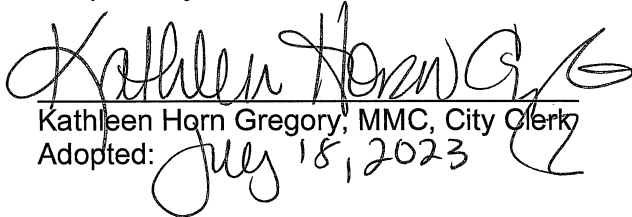 Kathleen Horn Gregory
Kathleen Horn Gregory, MMC, City Clerk
Adopted: July 18, 2023